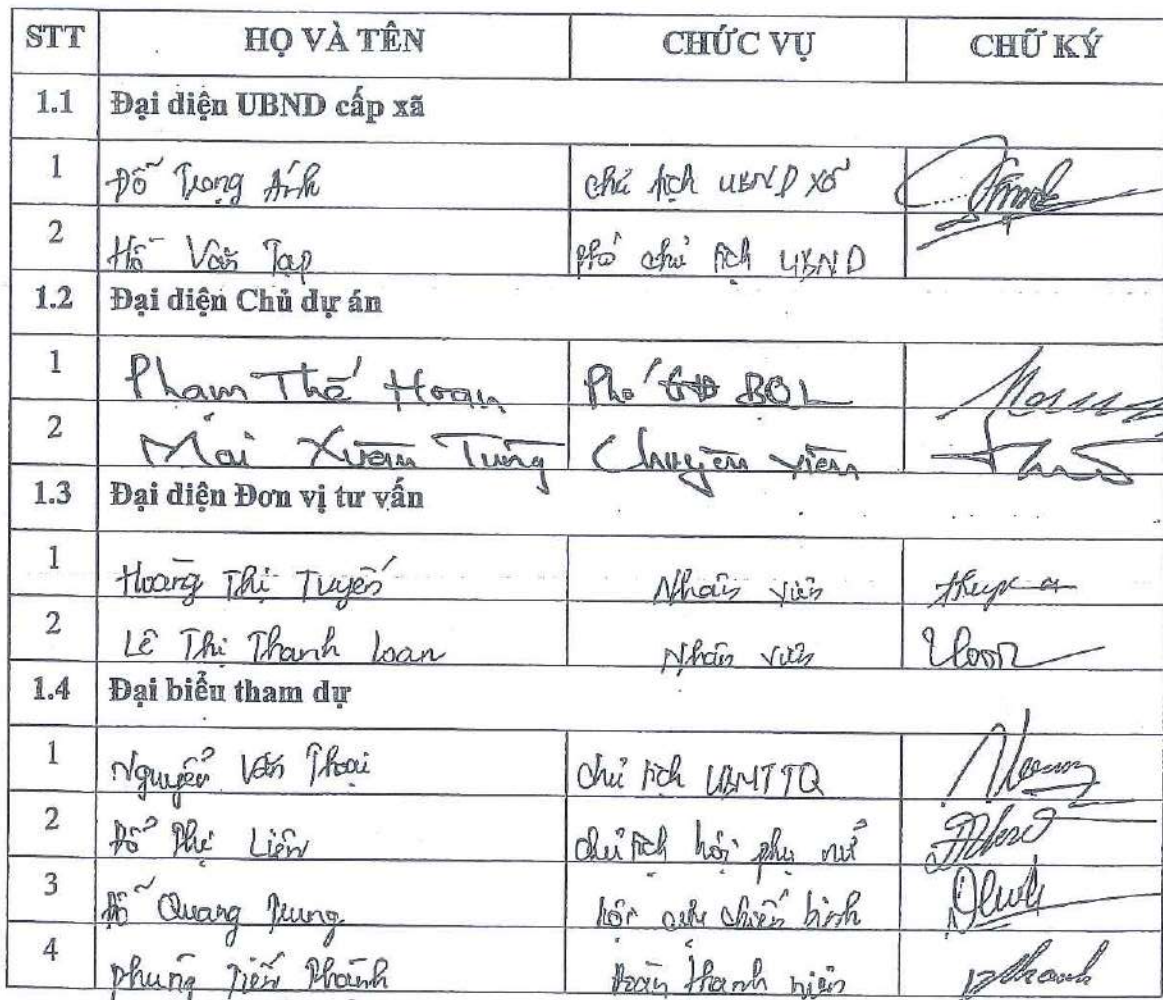 STT HỌ VÀ TÊN CHỨC VỤ CHỮ KÝ
1.1 Đại diện UBND cấp xã
1 Đỗ Trọng Ánh chủ tịch UBND xã
2 Hồ Văn Tạp phó chủ tịch UBND
1.2 Đại diện Chủ dự án
1 Phạm Thế Hoan Phó GĐ BQL
2 Mai Xuân Tùng Chuyên viên
1.3 Đại diện Đơn vị tư vấn
1 Hoàng Thị Tuyến Nhân viên
2 Lê Thị Thanh Loan Nhân viên
1.4 Đại biểu tham dự
1 Nguyễn Văn Thoại chủ tịch UBMTTQ
2 Đỗ Thị Liên chủ tịch hội phụ nữ
3 Đỗ Quang Trung hội cựu chiến binh
4 Phùng Tiến Thành Đoàn thanh niên